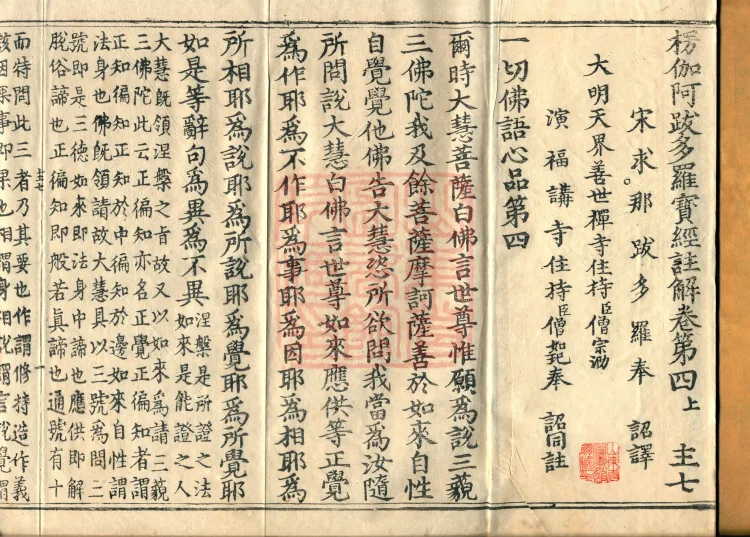 楞伽阿跋多羅寶經註解卷第四上 主七
宋求那跋多羅奉 詔譯
大明天界善世禪寺住持臣僧宗泐
演福講寺住持臣僧如玘奉 詔同註
一切佛語心品第四
爾時大慧菩薩白佛言世尊惟願為說三藐
三佛陀我及餘菩薩摩訶薩善於如來自性
自覺覺他佛告大慧恣所欲問我當為汝隨
所問說大慧白佛言世尊如來應供等正覺
為作耶為不作耶為事耶為因耶為相耶為
所相耶為說耶為所說耶為覺耶為所覺耶
如是等辭句為異為不異
涅槃是所證之法
如來是能證之人
大慧既領涅槃之旨故又以如來為請三藐
三佛陀此云正徧知亦名正覺正徧知者謂
正知徧知正知於中徧知於邊如來自性謂
法身也佛既領請故大慧具以三號為問二
號即是三德如來即法身中諦也應供即解
脫俗諦也正徧知即般若真諦也通號有十
而特問此三者乃其要也作謂修持造作義